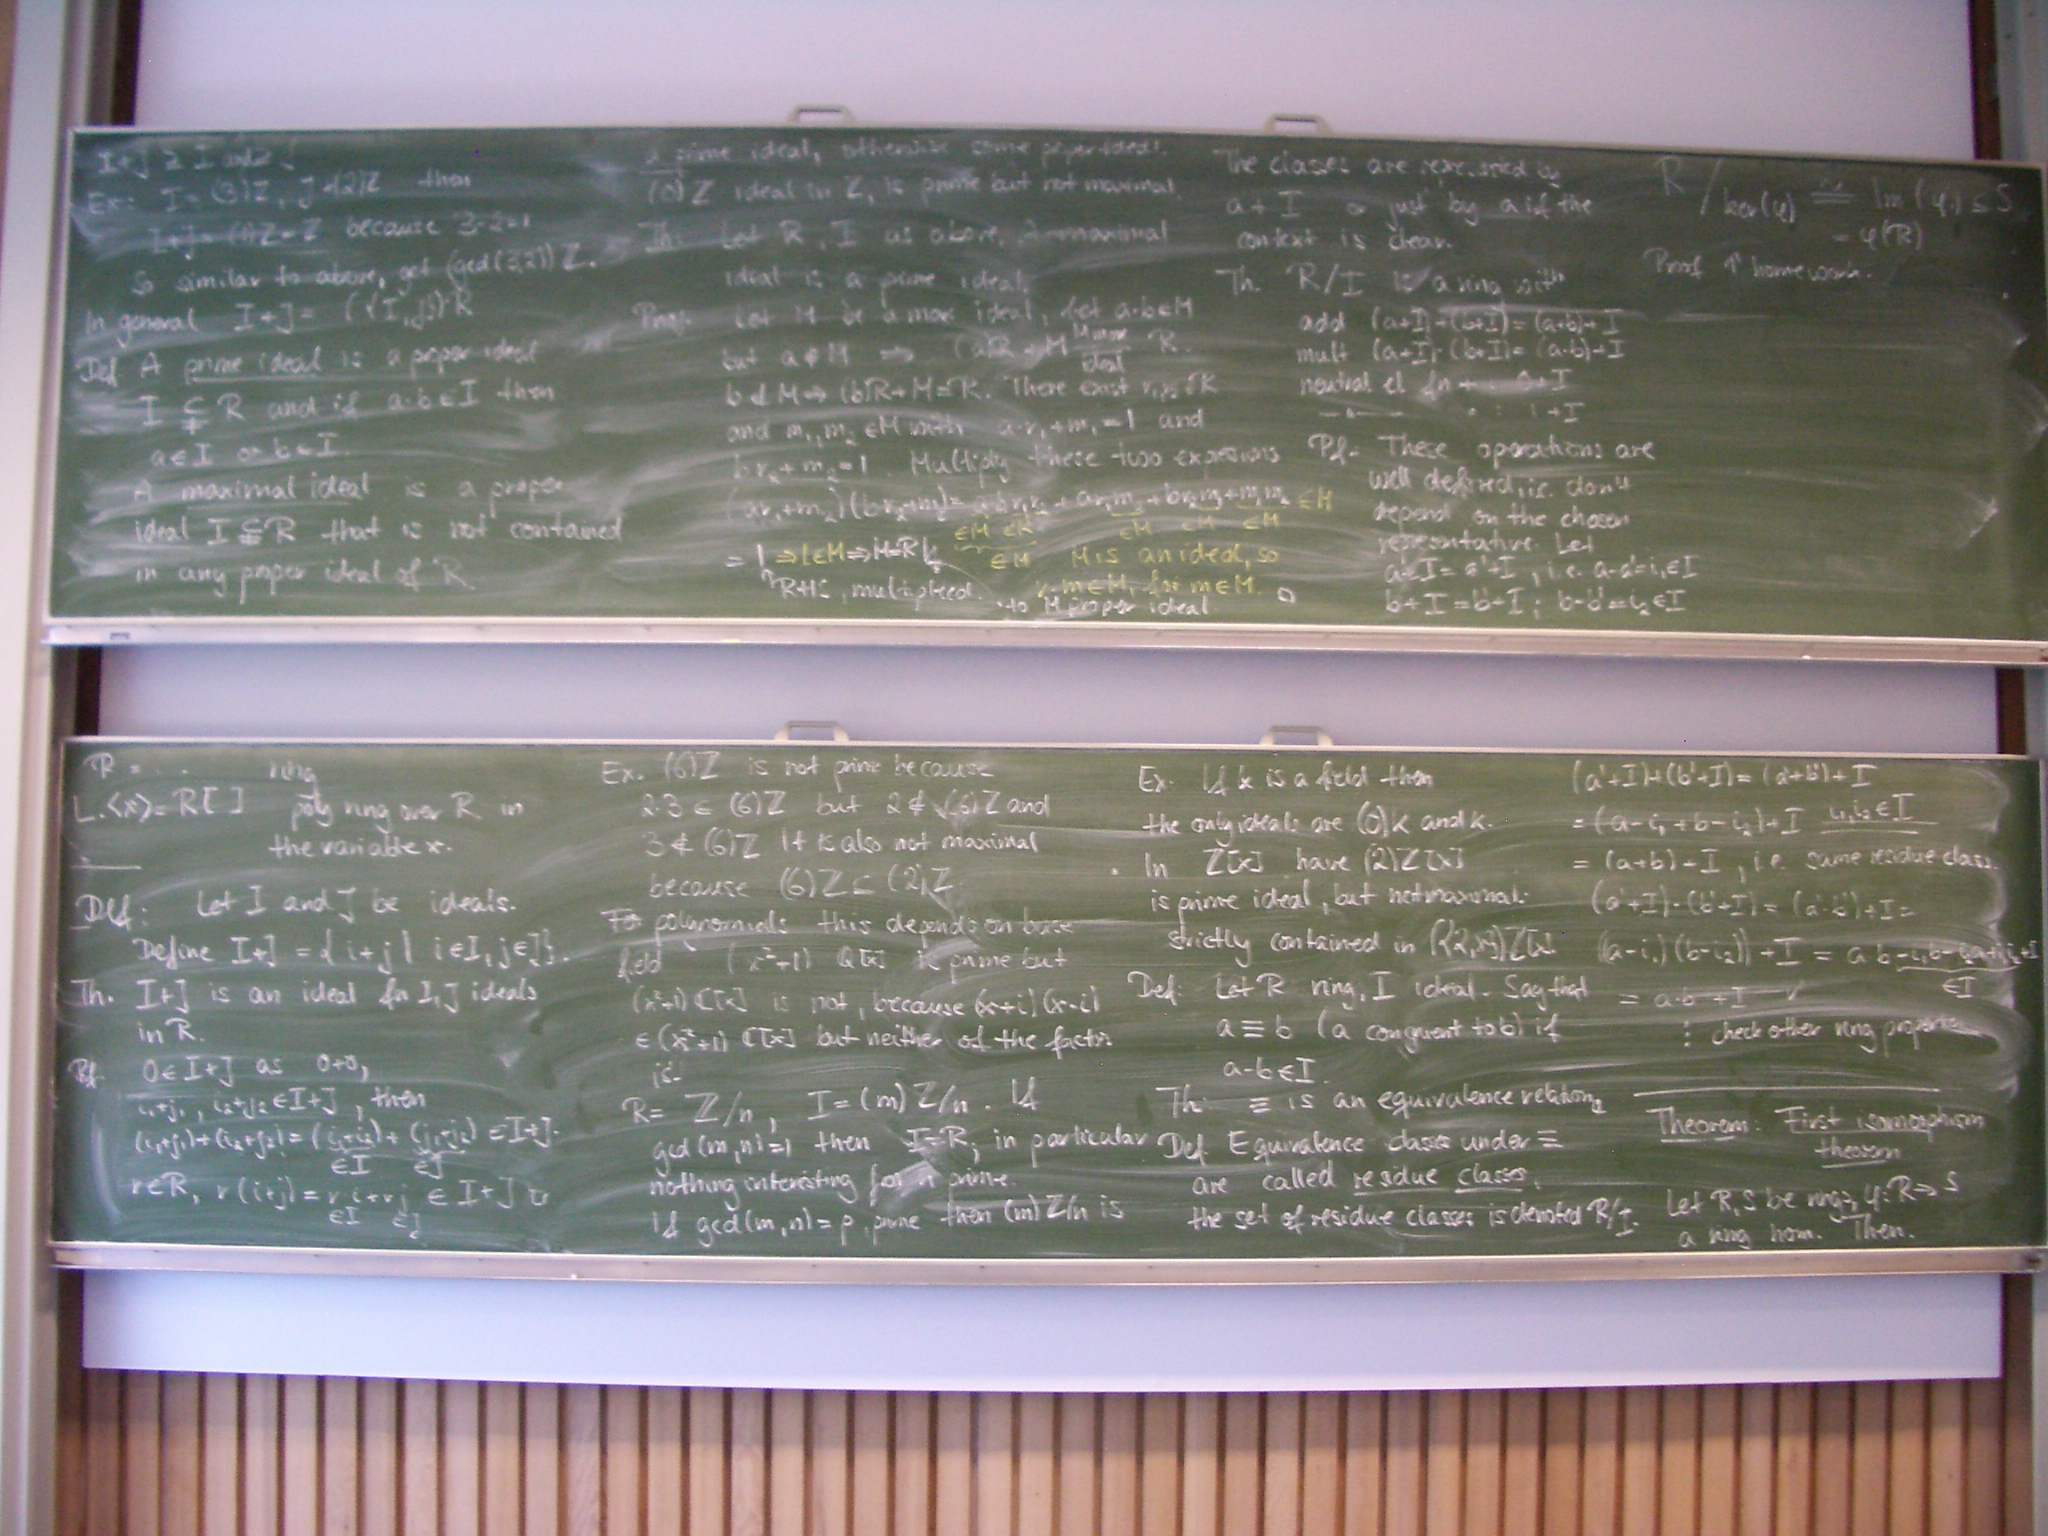 I+J ⊇ I and J
Ex: I = (3)Z, J=(2)Z then
I+J = (1)Z = Z because 3-2=1
So similar to above, get (gcd(3,2))Z.
In general I+J = ({I,J})R
Def A prime ideal is a proper ideal
I ⊊ R and if a·b∈I then
a∈I or b∈I.
A maximal ideal is a proper
ideal I⊊R that is not contained
in any proper ideal of R.
a prime ideal, otherwise some proper ideal.
(0)Z ideal in Z, is prime but not maximal.
Th: Let R, I as above, a maximal
ideal is a prime ideal.
Proof: Let M be a max ideal, let a·b∈M
but a∉M ⇒ (a)R+M = R.
M max
ideal
b∉M ⇒ (b)R+M=R. There exist r₁,r₂∈R
and m₁,m₂∈M with a·r₁+m₁=1 and
br₂+m₂=1. Multiply these two expressions
(ar₁+m₂)(br₂+m₂)= abr₁r₂+ar₁m₂+br₂m₁+m₁m₂ ∈M
∈M ∈R ∈M ∈M ∈M
= 1 ⇒1∈M⇒M=R ↯ ∈M M is an ideal, so
r·m∈M, for m∈M.
RHS, multiplied. to M proper ideal □
The classes are represented by
a+I or just by a if the
context is clear.
Th. R/I is a ring with
add (a+I)+(b+I)=(a+b)+I
mult (a+I)·(b+I)=(a·b)+I
neutral el for + : 0+I
—"— · : 1+I
Pf. These operations are
well defined, i.e. don't
depend on the chosen
representative. Let
a+I = a'+I, i.e. a-a'=i₁∈I
b+I = b'+I; b-b'=i₂∈I
R/ker(φ) ≅ Im(φ) ⊆ S
= φ(R)
Proof ↑ homework.
R = ... ring
L.<x>=R[ ] poly ring over R in
the variable x.
Def: Let I and J be ideals.
Define I+J = {i+j | i∈I, j∈J}.
Th. I+J is an ideal for I,J ideals
in R.
Pf. 0∈I+J as 0+0,
i₁+j₁, i₂+j₂∈I+J, then
(i₁+j₁)+(i₂+j₂)=(i₁+i₂)+(j₁+j₂)∈I+J.
∈I ∈J
r∈R, r(i+j)=r·i+r·j ∈ I+J □
∈I ∈J
Ex. (6)Z is not prime because
2·3 ∈ (6)Z but 2∉(6)Z and
3∉(6)Z It is also not maximal
because (6)Z⊂(2)Z.
For polynomials this depends on base
field (x²+1)Q[x] is prime but
(x²+1)C[x] is not, because (x+i)(x-i)
∈(x²+1)C[x] but neither of the factors
is.
R= Z/n, I=(m)Z/n. If
gcd(m,n)=1 then I=R, in particular
nothing interesting for n prime.
if gcd(m,n)=p, prime then (m)Z/n is
Ex. If k is a field then
the only ideals are (0)k and k.
· In Z[x] have (2)Z[x]
is prime ideal, but not maximal:
strictly contained in ({2,x})Z[x].
Def: Let R ring, I ideal. Say that
a≡b (a congruent to b) if
a-b∈I.
Th: ≡ is an equivalence relation
Def Equivalence classes under ≡
are called residue classes.
the set of residue classes is denoted R/I.
(a'+I)+(b'+I)=(a'+b')+I
=(a-i₁+b-i₂)+I i₁,i₂∈I
=(a+b)+I, i.e. same residue class.
(a'+I)·(b'+I)=(a'·b')+I=
((a-i₁)(b-i₂))+I = ab-i₁b-i₂a+i₁i₂+I
∈I
= a·b+I ✓
⋮ check other ring properties
Theorem: First isomorphism
theorem
Let R,S be rings, φ:R→S
a ring hom. Then.